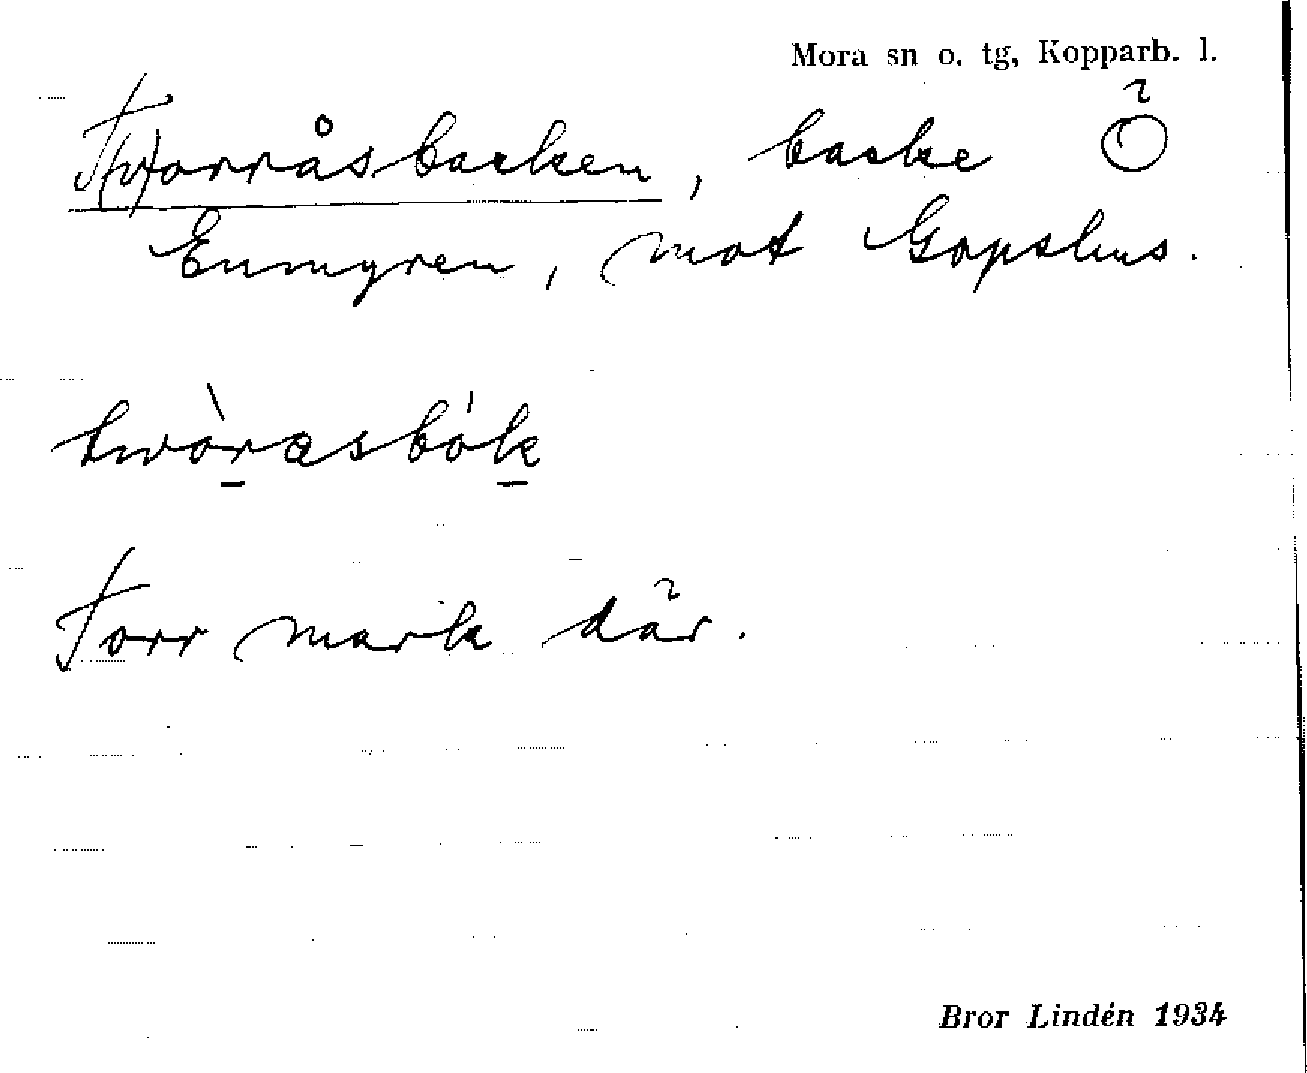 Mora sn o. tg, Kopparb. l.
T(v)orråsbacken, backe Ö
Enmyren, mot Gopshus.
twòrasbók
Torr mark där.
Bror Lindén 1934